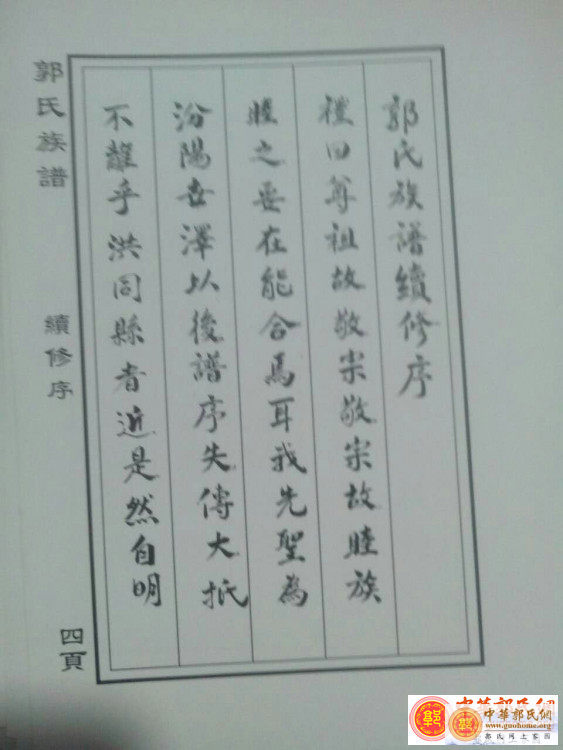 郭氏族譜續修序
禮曰尊祖故敬宗敬宗故睦族
睦之要在能合焉耳我先聖為
汾陽世澤以後譜序失傳大抵
不離乎洪同縣者近是然自明
郭氏族譜
續修序
四頁
中華郭氏網
www.guohome.org
郭氏網上家園